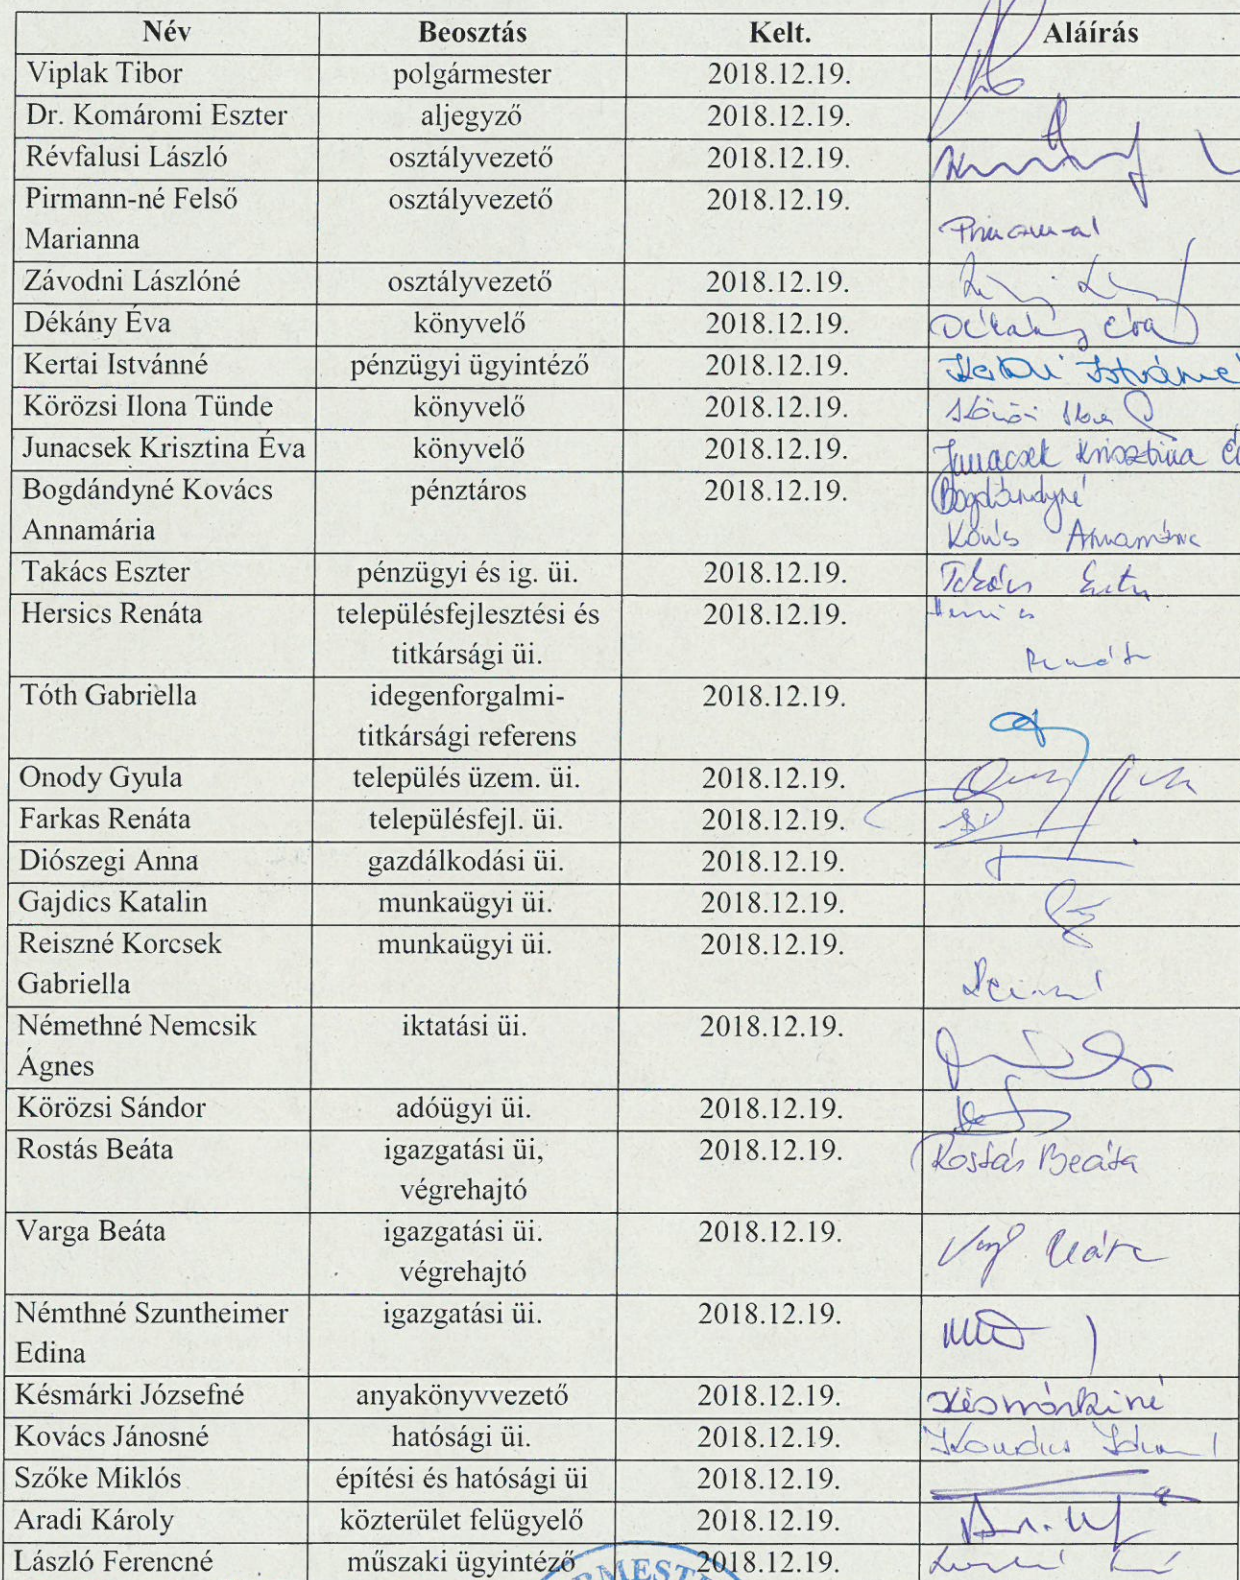 Név Beosztás Kelt. Aláírás
Viplak Tibor polgármester 2018.12.19.
Dr. Komáromi Eszter aljegyző 2018.12.19.
Révfalusi László osztályvezető 2018.12.19.
Pirmann-né Felső osztályvezető 2018.12.19.
Marianna
Závodni Lászlóné osztályvezető 2018.12.19.
Dékány Éva könyvelő 2018.12.19. Dékány Éva
Kertai Istvánné pénzügyi ügyintéző 2018.12.19. Kertai Istvánné
Körözsi Ilona Tünde könyvelő 2018.12.19.
Junacsek Krisztina Éva könyvelő 2018.12.19. Junacsek Krisztina Év
Bogdándyné Kovács pénztáros 2018.12.19. Bogdándyné
Annamária Kovács Annamária
Takács Eszter pénzügyi és ig. üi. 2018.12.19. Takács Eszter
Hersics Renáta településfejlesztési és 2018.12.19.
titkársági üi. Renáta
Tóth Gabriella idegenforgalmi- 2018.12.19.
titkársági referens
Onody Gyula település üzem. üi. 2018.12.19.
Farkas Renáta településfejl. üi. 2018.12.19.
Diószegi Anna gazdálkodási üi. 2018.12.19.
Gajdics Katalin munkaügyi üi. 2018.12.19.
Reiszné Korcsek munkaügyi üi. 2018.12.19.
Gabriella
Némethné Nemcsik iktatási üi. 2018.12.19.
Ágnes
Körözsi Sándor adóügyi üi. 2018.12.19.
Rostás Beáta igazgatási üi, 2018.12.19. Rostás Beáta
végrehajtó
Varga Beáta igazgatási üi. 2018.12.19. Varga Beáta
végrehajtó
Némthné Szuntheimer igazgatási üi. 2018.12.19.
Edina
Késmárki Józsefné anyakönyvvezető 2018.12.19. Késmárkiné
Kovács Jánosné hatósági üi. 2018.12.19. Kovács Jánosné
Szőke Miklós építési és hatósági üi 2018.12.19.
Aradi Károly közterület felügyelő 2018.12.19.
László Ferencné műszaki ügyintéző 2018.12.19.